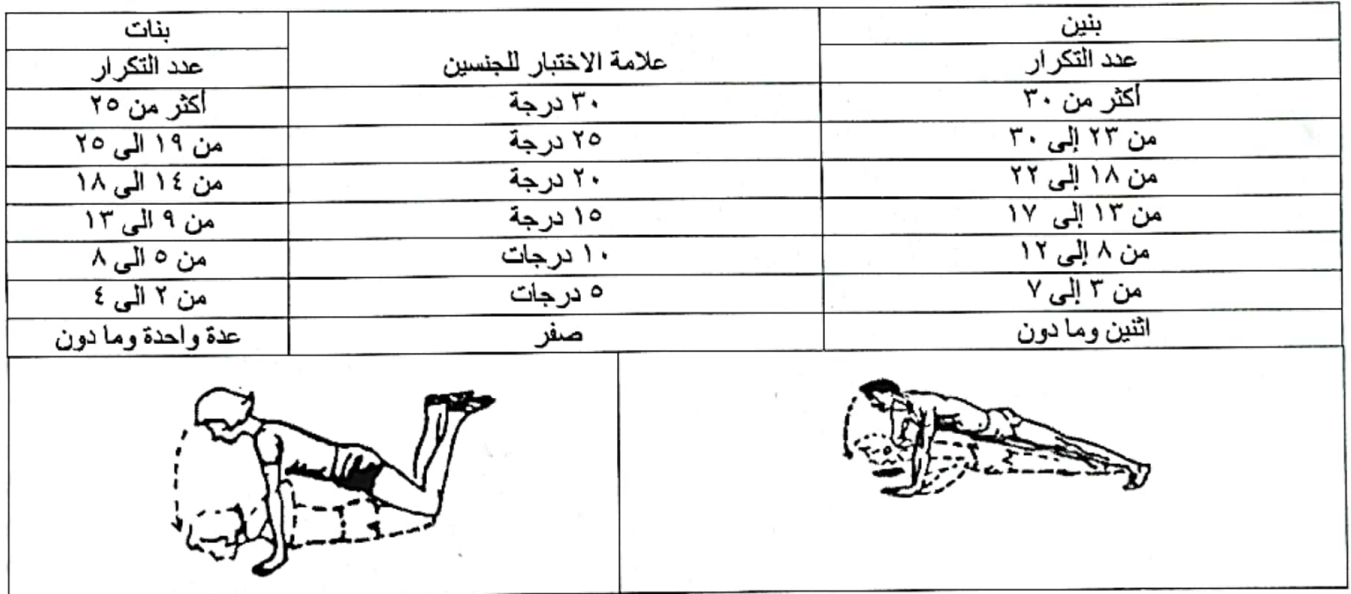 بنين علامة الاختبار للجنسين بنات
عدد التكرار عدد التكرار
أكثر من ٣٠ ٣٠ درجة أكثر من ٢٥
من ٢٣ إلى ٣٠ ٢٥ درجة من ١٩ الى ٢٥
من ١٨ إلى ٢٢ ٢٠ درجة من ١٤ الى ١٨
من ١٣ إلى ١٧ ١٥ درجة من ٩ الى ١٣
من ٨ إلى ١٢ ١٠ درجات من ٥ الى ٨
من ٣ إلى ٧ ٥ درجات من ٢ الى ٤
اثنين وما دون صفر عدة واحدة وما دون